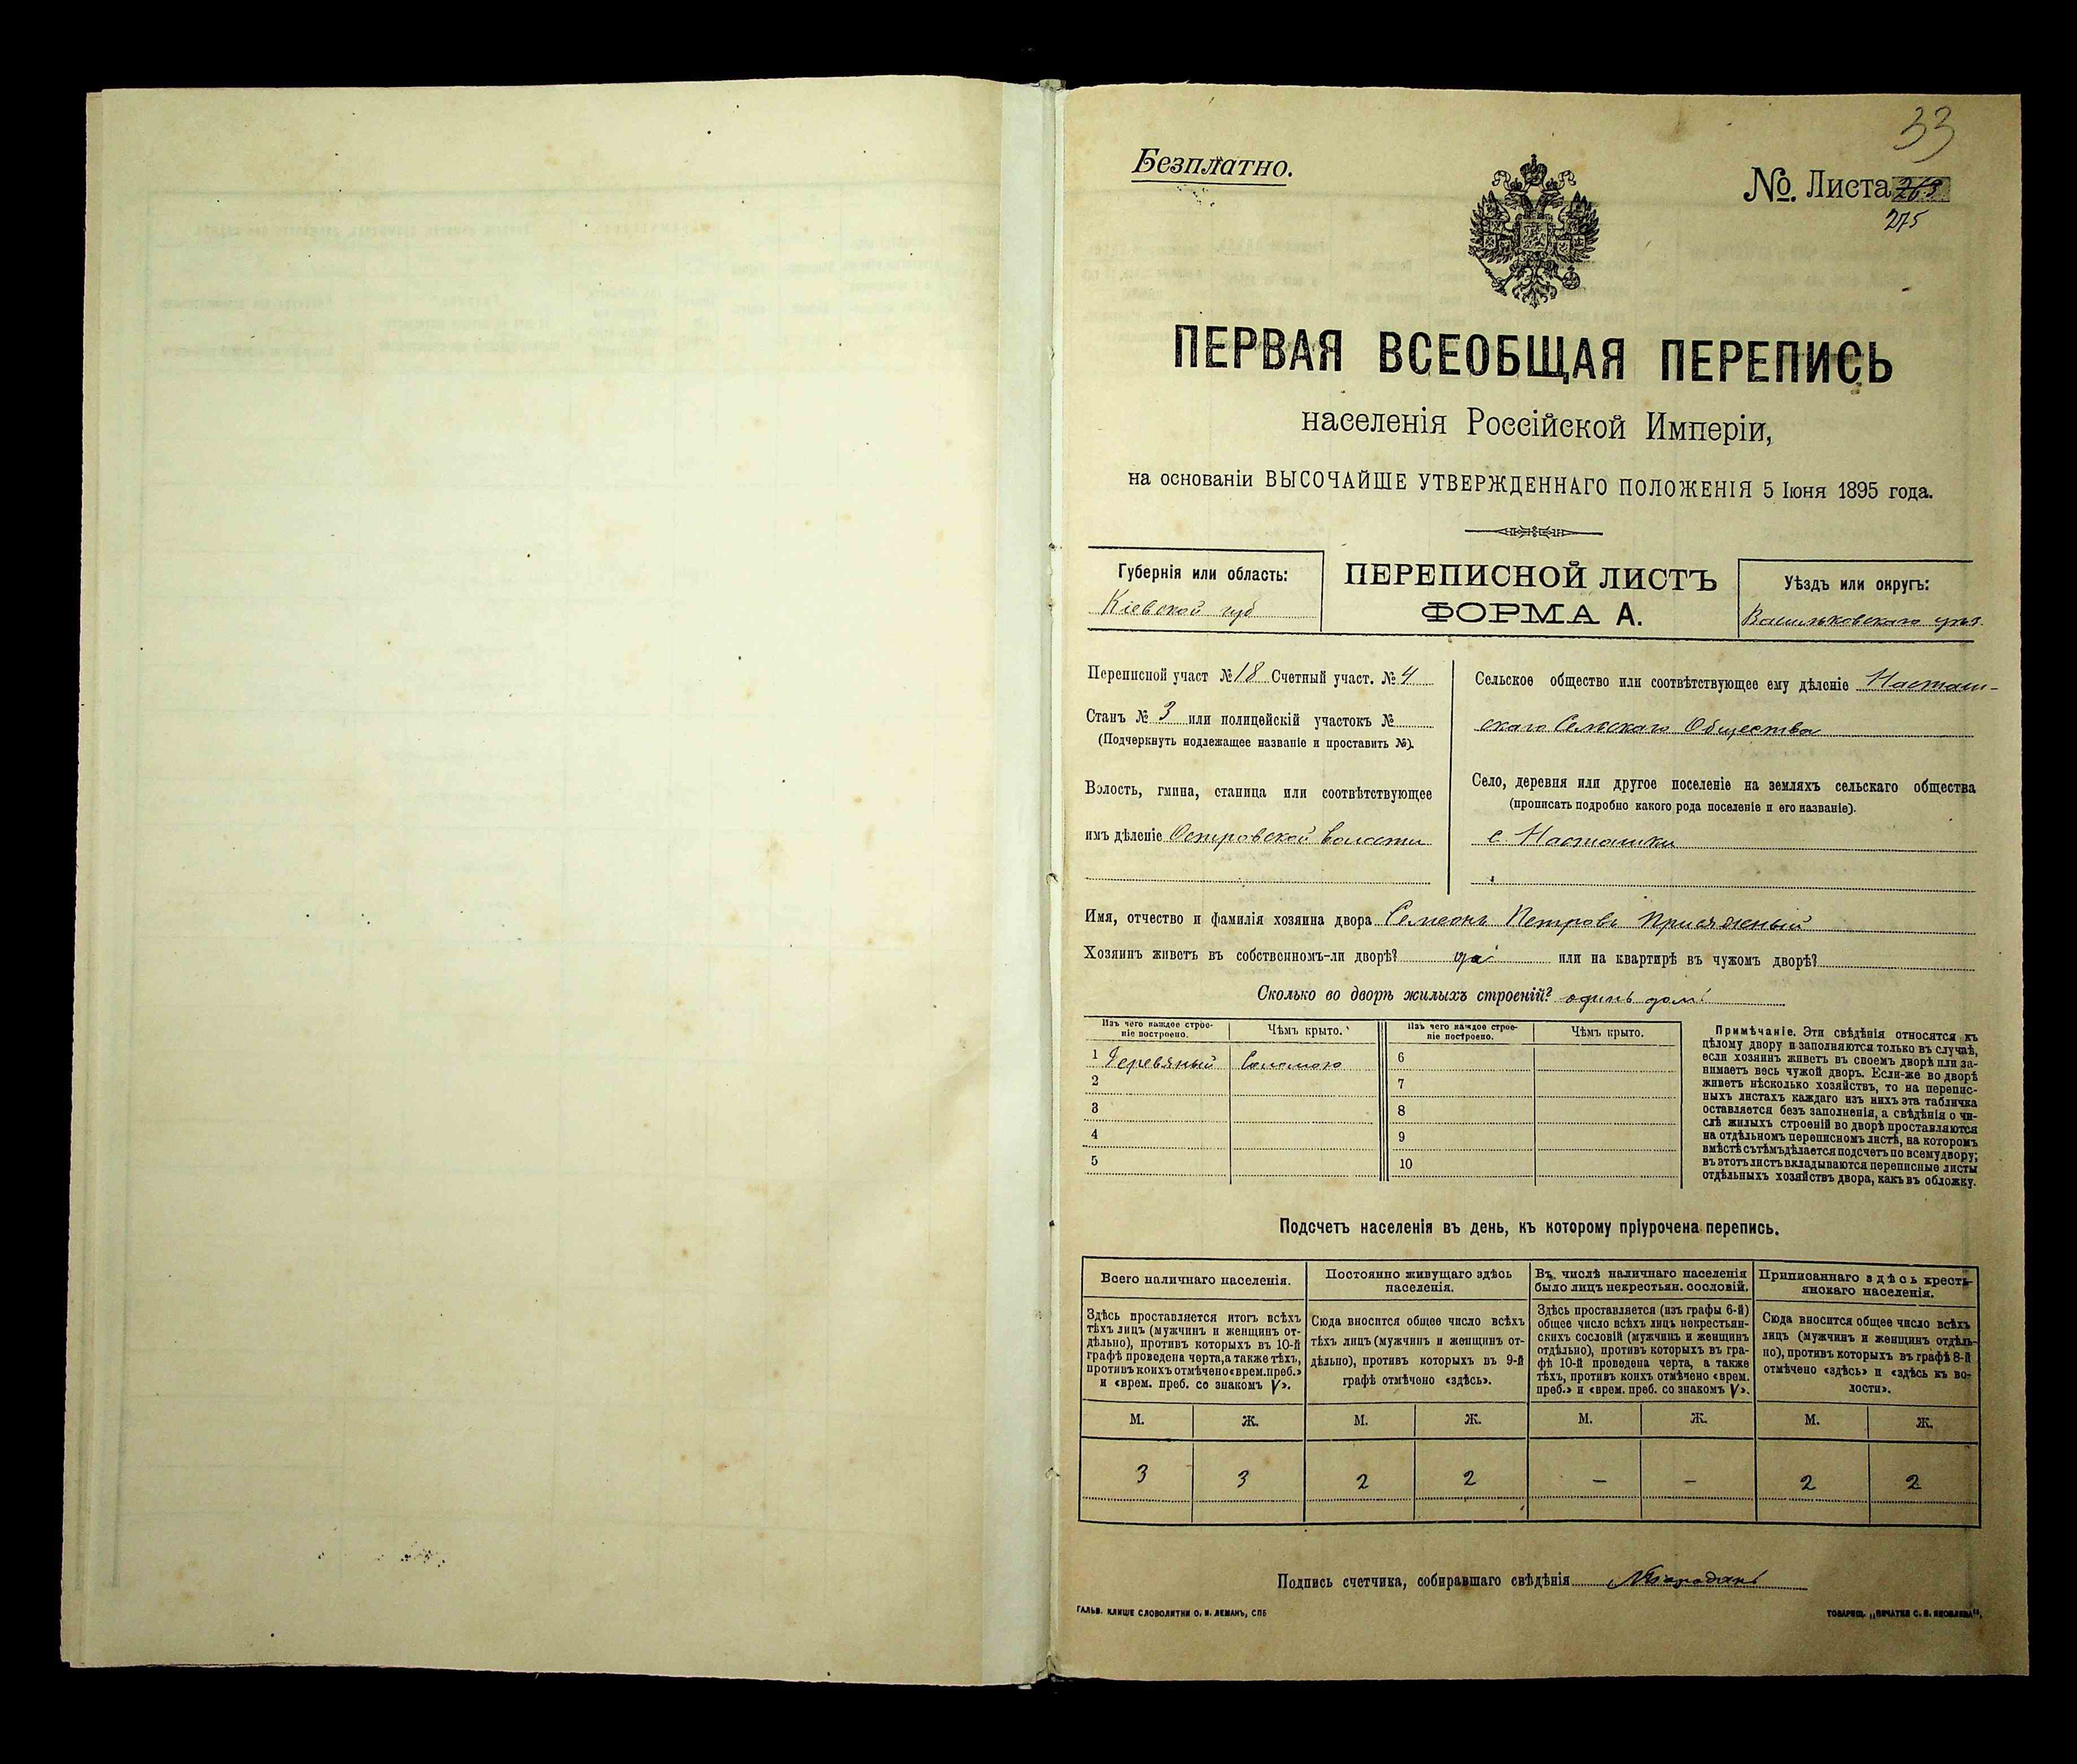 33
Безплатно.
№. Листа 263
275
ПЕРВАЯ ВСЕОБЩАЯ ПЕРЕПИСЬ
населенія Россійской Имперіи,
на основаніи ВЫСОЧАЙШЕ УТВЕРЖДЕННАГО ПОЛОЖЕНІЯ 5 Іюня 1895 года.
Губернія или область:
Кіевской губ
ПЕРЕПИСНОЙ ЛИСТЪ
ФОРМА А.
Уѣздъ или округъ:
Васильковскаго уѣз.
Переписной участ № 18 Счетный участ. № 4
Станъ № 3 или полицейскій участокъ №
(Подчеркнуть подлежащее названіе и проставить №).
Волость, гмина, станица или соотвѣтствующее
имъ дѣленіе Островской волости
Сельское общество или соотвѣтствующее ему дѣленіе Насташ-
скаго Сельскаго Общества
Село, деревня или другое поселеніе на земляхъ сельскаго общества
(прописать подробно какого рода поселеніе и его названіе).
с. Насташки
Имя, отчество и фамилія хозяина двора Семеонъ Петровъ Присяжный
Хозяинъ живетъ въ собственномъ-ли дворѣ? да или на квартирѣ въ чужомъ дворѣ?
Сколько во дворѣ жилыхъ строеній? одинъ домъ
Изъ чего каждое строе-
ніе построено.
Чѣмъ крыто.
Изъ чего каждое строе-
ніе построено.
Чѣмъ крыто.
1 Деревяный Соломою 6
2 7
3 8
4 9
5 10
Примѣчаніе. Эти свѣдѣнія относятся къ
цѣлому двору и заполняются только въ случаѣ,
если хозяинъ живетъ въ своемъ дворѣ или за-
нимаетъ весь чужой дворъ. Если-же во дворѣ
живетъ нѣсколько хозяйствъ, то на перепис-
ныхъ листахъ каждаго изъ нихъ эта табличка
оставляется безъ заполненія, а свѣдѣнія о чи-
слѣ жилыхъ строеній во дворѣ проставляются
на отдѣльномъ переписномъ листѣ, на которомъ
вмѣстѣ съ тѣмъ дѣлается подсчетъ по всему двору;
въ этотъ листъ вкладываются переписные листы
отдѣльныхъ хозяйствъ двора, какъ въ обложку.
Подсчетъ населенія въ день, къ которому пріурочена перепись.
Всего наличнаго населенія.
Здѣсь проставляется итогъ всѣхъ
тѣхъ лицъ (мужчинъ и женщинъ от-
дѣльно), противъ которыхъ въ 10-й
графѣ проведена черта, а также тѣхъ,
противъ коихъ отмѣчено «врем. преб.»
и «врем. преб. со знакомъ V».
Постоянно живущаго здѣсь
населенія.
Сюда вносится общее число всѣхъ
тѣхъ лицъ (мужчинъ и женщинъ от-
дѣльно), противъ которыхъ въ 9-й
графѣ отмѣчено «здѣсь».
Въ числѣ наличнаго населенія
было лицъ некрестьян. сословій.
Здѣсь проставляется (изъ графы 6-й)
общее число всѣхъ лицъ некрестьян-
скихъ сословій (мужчинъ и женщинъ
отдѣльно), противъ которыхъ въ гра-
фѣ 10-й проведена черта, а также
тѣхъ, противъ коихъ отмѣчено «врем.
преб.» и «врем. преб. со знакомъ V».
Приписаннаго здѣсь кресть-
янскаго населенія.
Сюда вносится общее число всѣхъ
лицъ (мужчинъ и женщинъ отдѣль-
но), противъ которыхъ въ графѣ 8-й
отмѣчено «здѣсь» и «здѣсь къ во-
лости».
М. Ж. М. Ж. М. Ж. М. Ж.
3 3 2 2 — — 2 2
Подпись счетчика, собиравшаго свѣдѣнія
ГАЛЬВ. КЛИШЕ СЛОВОЛИТНИ О. И. ЛЕМАНЪ, СПБ
ТОВАРИЩ. „ПЕЧАТНЯ С. П. ЯКОВЛЕВА".